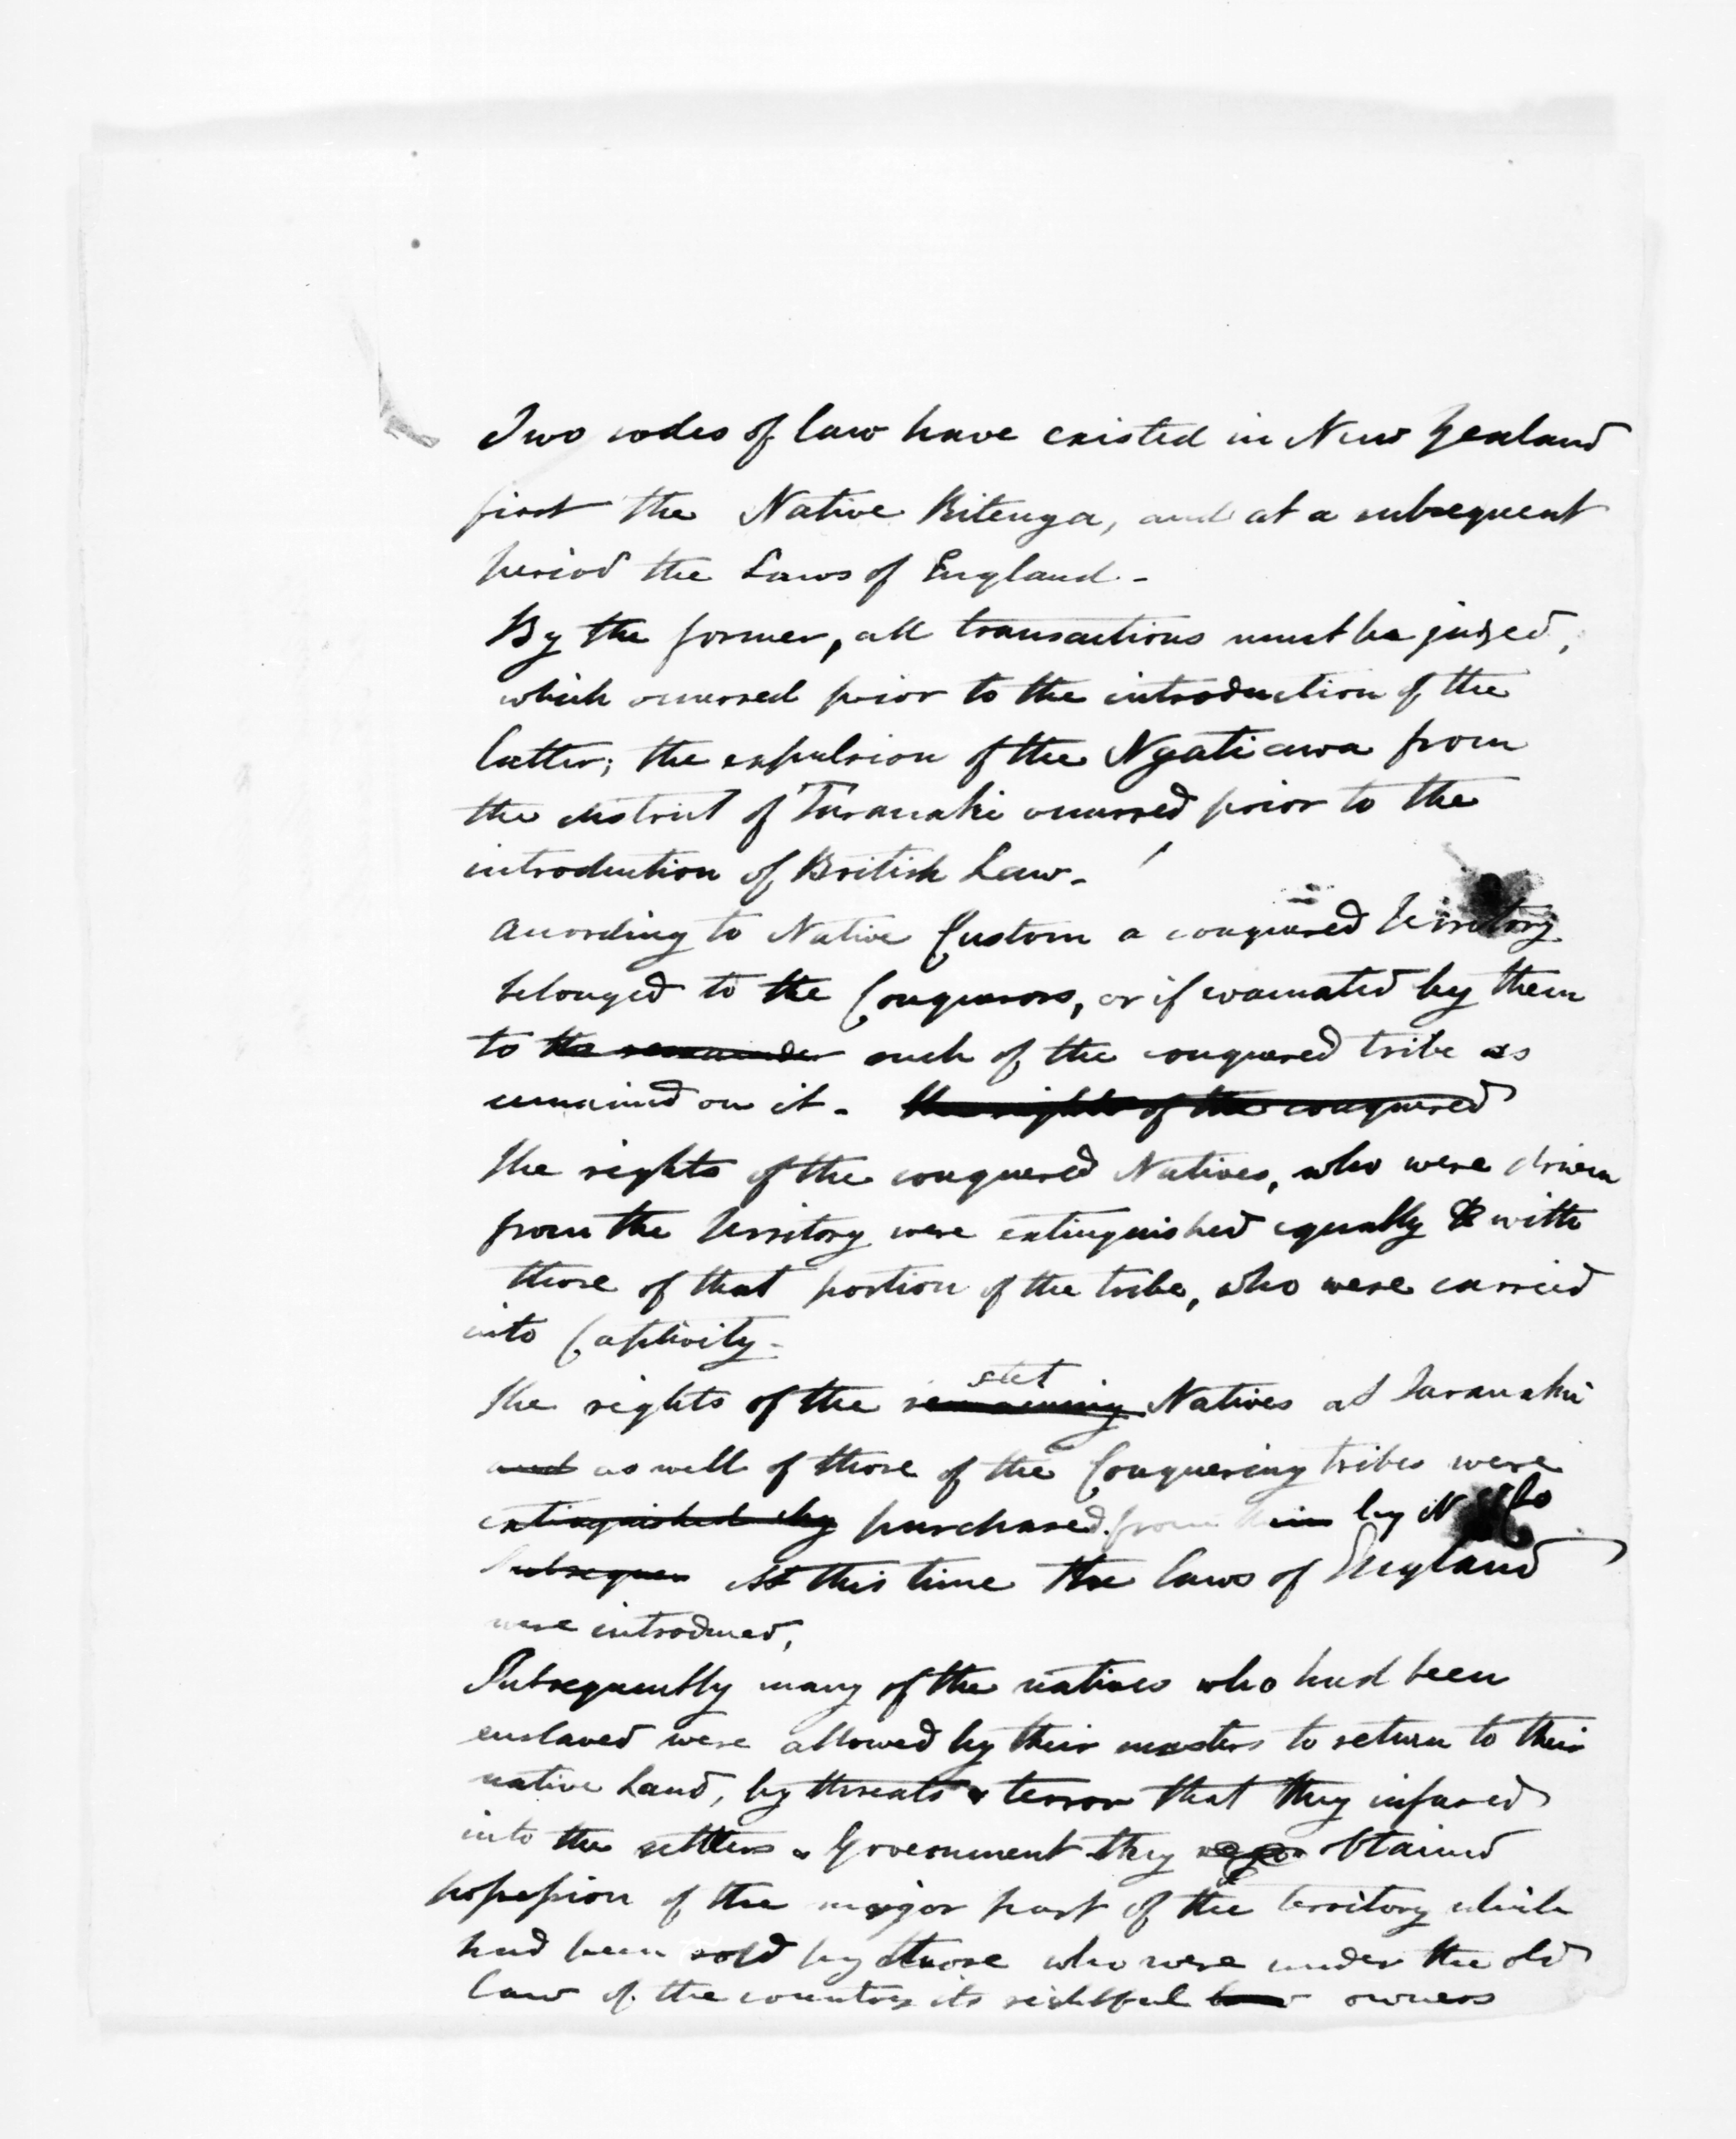 Two codes of law have existed in New Zealand
first the Native Ritenga, and at a subsequent
period the Laws of England. -
By the former, all transactions must be juged,
which occurred prior to the introduction of the
latter; the expulsion of the Ngatiawa from
the district of Taranaki occurred prior to the
introduction of British Law. -
According to Native Custom a conquered Territory
belonged to the Conquerors, or if evacuated by them
to the remainder such of the conquered tribe as
remained on it - the rights of the conquered
The rights of the conquered Natives, who were driven
from the Territory were extinguished equally with
those of that portion of the tribe, who were carried
into Captivity. -
stet
The rights of the remaining Natives at Taranaki
and as well of those of the Conquering tribes were
extinguished by purchased from them by N Co
Subsequen At this time the laws of England
were introduced,
Subsequently many of the natives who had been
enslaved were allowed by their masters to return to their
native Land, by threats & terror that they infused
into the settlers & Government they obtained
possession of the major part of the territory which
had been sold by those who were under the old
law of the country its rightful owners